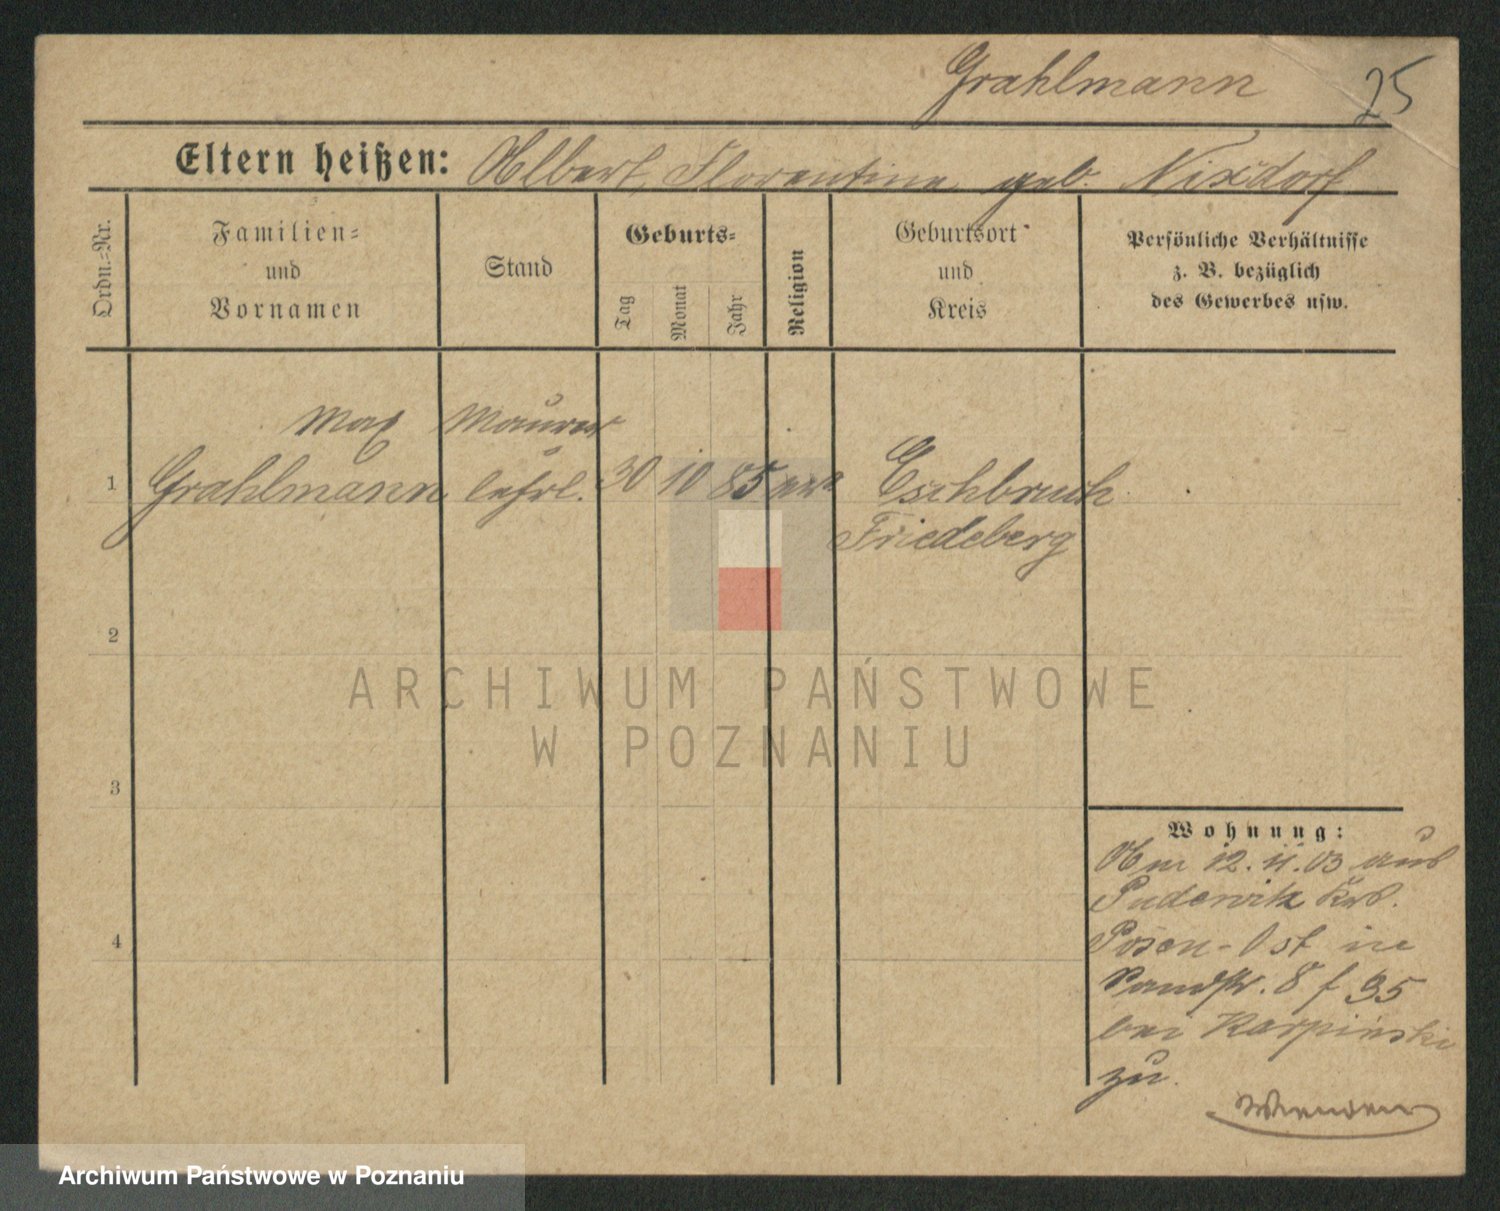 Grahlmann 25
Eltern heißen: Albert, Florentine geb. Nixdorf
Ordn.-Nr.
Familien-
und
Vornamen
Stand
Geburts-
Tag
Monat
Jahr
Religion
Geburtsort
und
Kreis
Persönliche Verhältnisse
z. B. bezüglich
des Gewerbes usw.
Max Maurer
1 Grahlmann lehrl. 30 10 85 Eschbruch
Friedeberg
2
ARCHIWUM PAŃSTWOWE
W POZNANIU
3
Wohnung:
Am 12.11.03 aus
Pudewitz Krs.
4
Posen-Ost in
8 f 35
bei Karpinski
zu
Archiwum Państwowe w Poznaniu